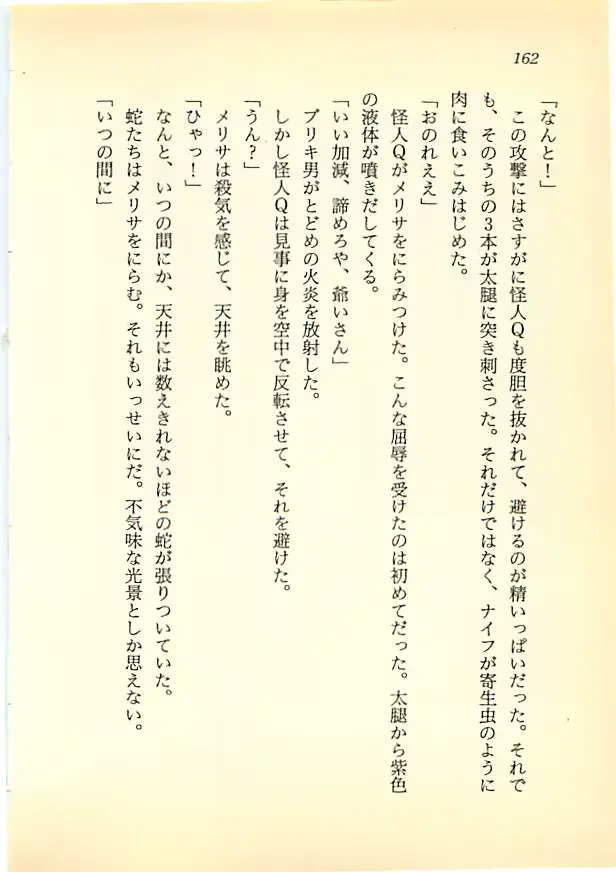 162
「なんと！」
この攻撃にはさすがに怪人Ｑも度胆を抜かれて、避けるのが精いっぱいだった。それで
も、そのうちの３本が太腿に突き刺さった。それだけではなく、ナイフが寄生虫のように
肉に食いこみはじめた。
「おのれええ」
怪人Ｑがメリサをにらみつけた。こんな屈辱を受けたのは初めてだった。太腿から紫色
の液体が噴きだしてくる。
「いい加減、諦めろや、爺いさん」
ブリキ男がとどめの火炎を放射した。
しかし怪人Ｑは見事に身を空中で反転させて、それを避けた。
「うん？」
メリサは殺気を感じて、天井を眺めた。
「ひゃっ！」
なんと、いつの間にか、天井には数えきれないほどの蛇が張りついていた。
蛇たちはメリサをにらむ。それもいっせいにだ。不気味な光景としか思えない。
「いつの間に」